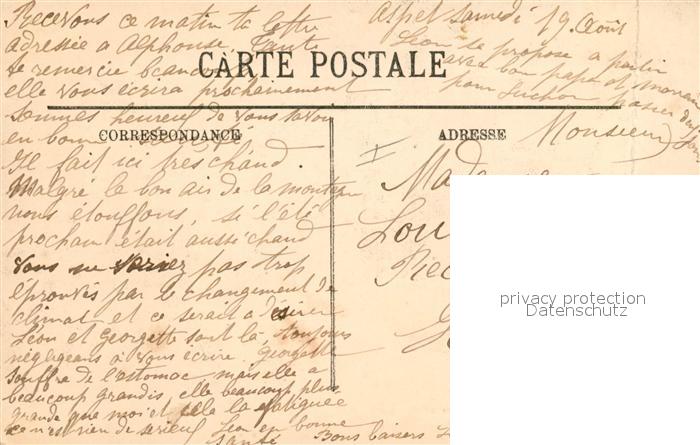 Recevons ce matin ta lettre
adressée a Alphonse, Tante
te remercie beaucoup
elle vous écrira prochainement
sommes heureux de vous savoir
en bonne santé
Il fait ici tres chaud.
Malgré le bon air de la montagne
nous étouffons, si l'été
prochain était aussi chaud
vous ne seriez pas trop
éprouvés par le changement de
climat et ce serait a désirer
Léon et Georgette sont la, toujours
négligeans a vous écrire. Georgette
souffre de l'estomac mais elle a
beaucoup grandis, elle beaucoup plus
grande que moi et cela la fatiguée
ce n'est rien de serieux Léon en bonne
santé Bons baisers
Aspet Samedi 19 Août
Léon se propose a partir
avec bon papa et
pour Luchon passer
CARTE POSTALE
CORRESPONDANCE
ADRESSE
Monsieur
Mada
Lou
privacy protection
Datenschutz